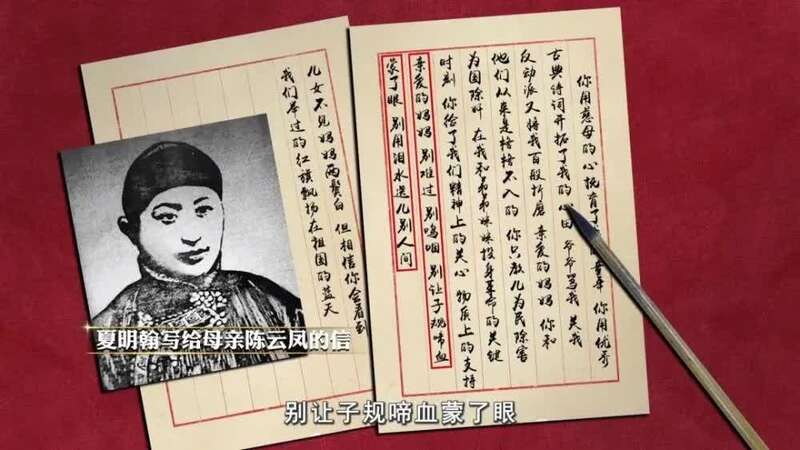 你用慈母的心抚育了 的童年 你用优秀
古典诗词开拓了我的心田 爷爷骂我 关我
反动派又将我百般折磨 亲爱的妈妈 你和
他们从来是格格不入的 你只教儿为民除害
为国除奸 在我和弟弟妹妹投身革命的关键
时刻 你给了我们精神上的关心 物质上的支持
亲爱的妈妈 别难过 别呜咽 别让子规啼血
蒙了眼 别用泪水送儿别人间
儿女不见妈妈两鬓白 但相信你会看到
我们举过的红旗飘扬在祖国的蓝天
夏明翰写给母亲陈云凤的信
别让子规啼血蒙了眼